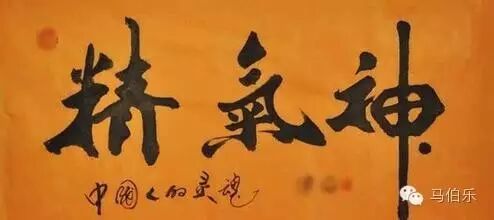 精氣神
中國人的灵魂
马伯乐